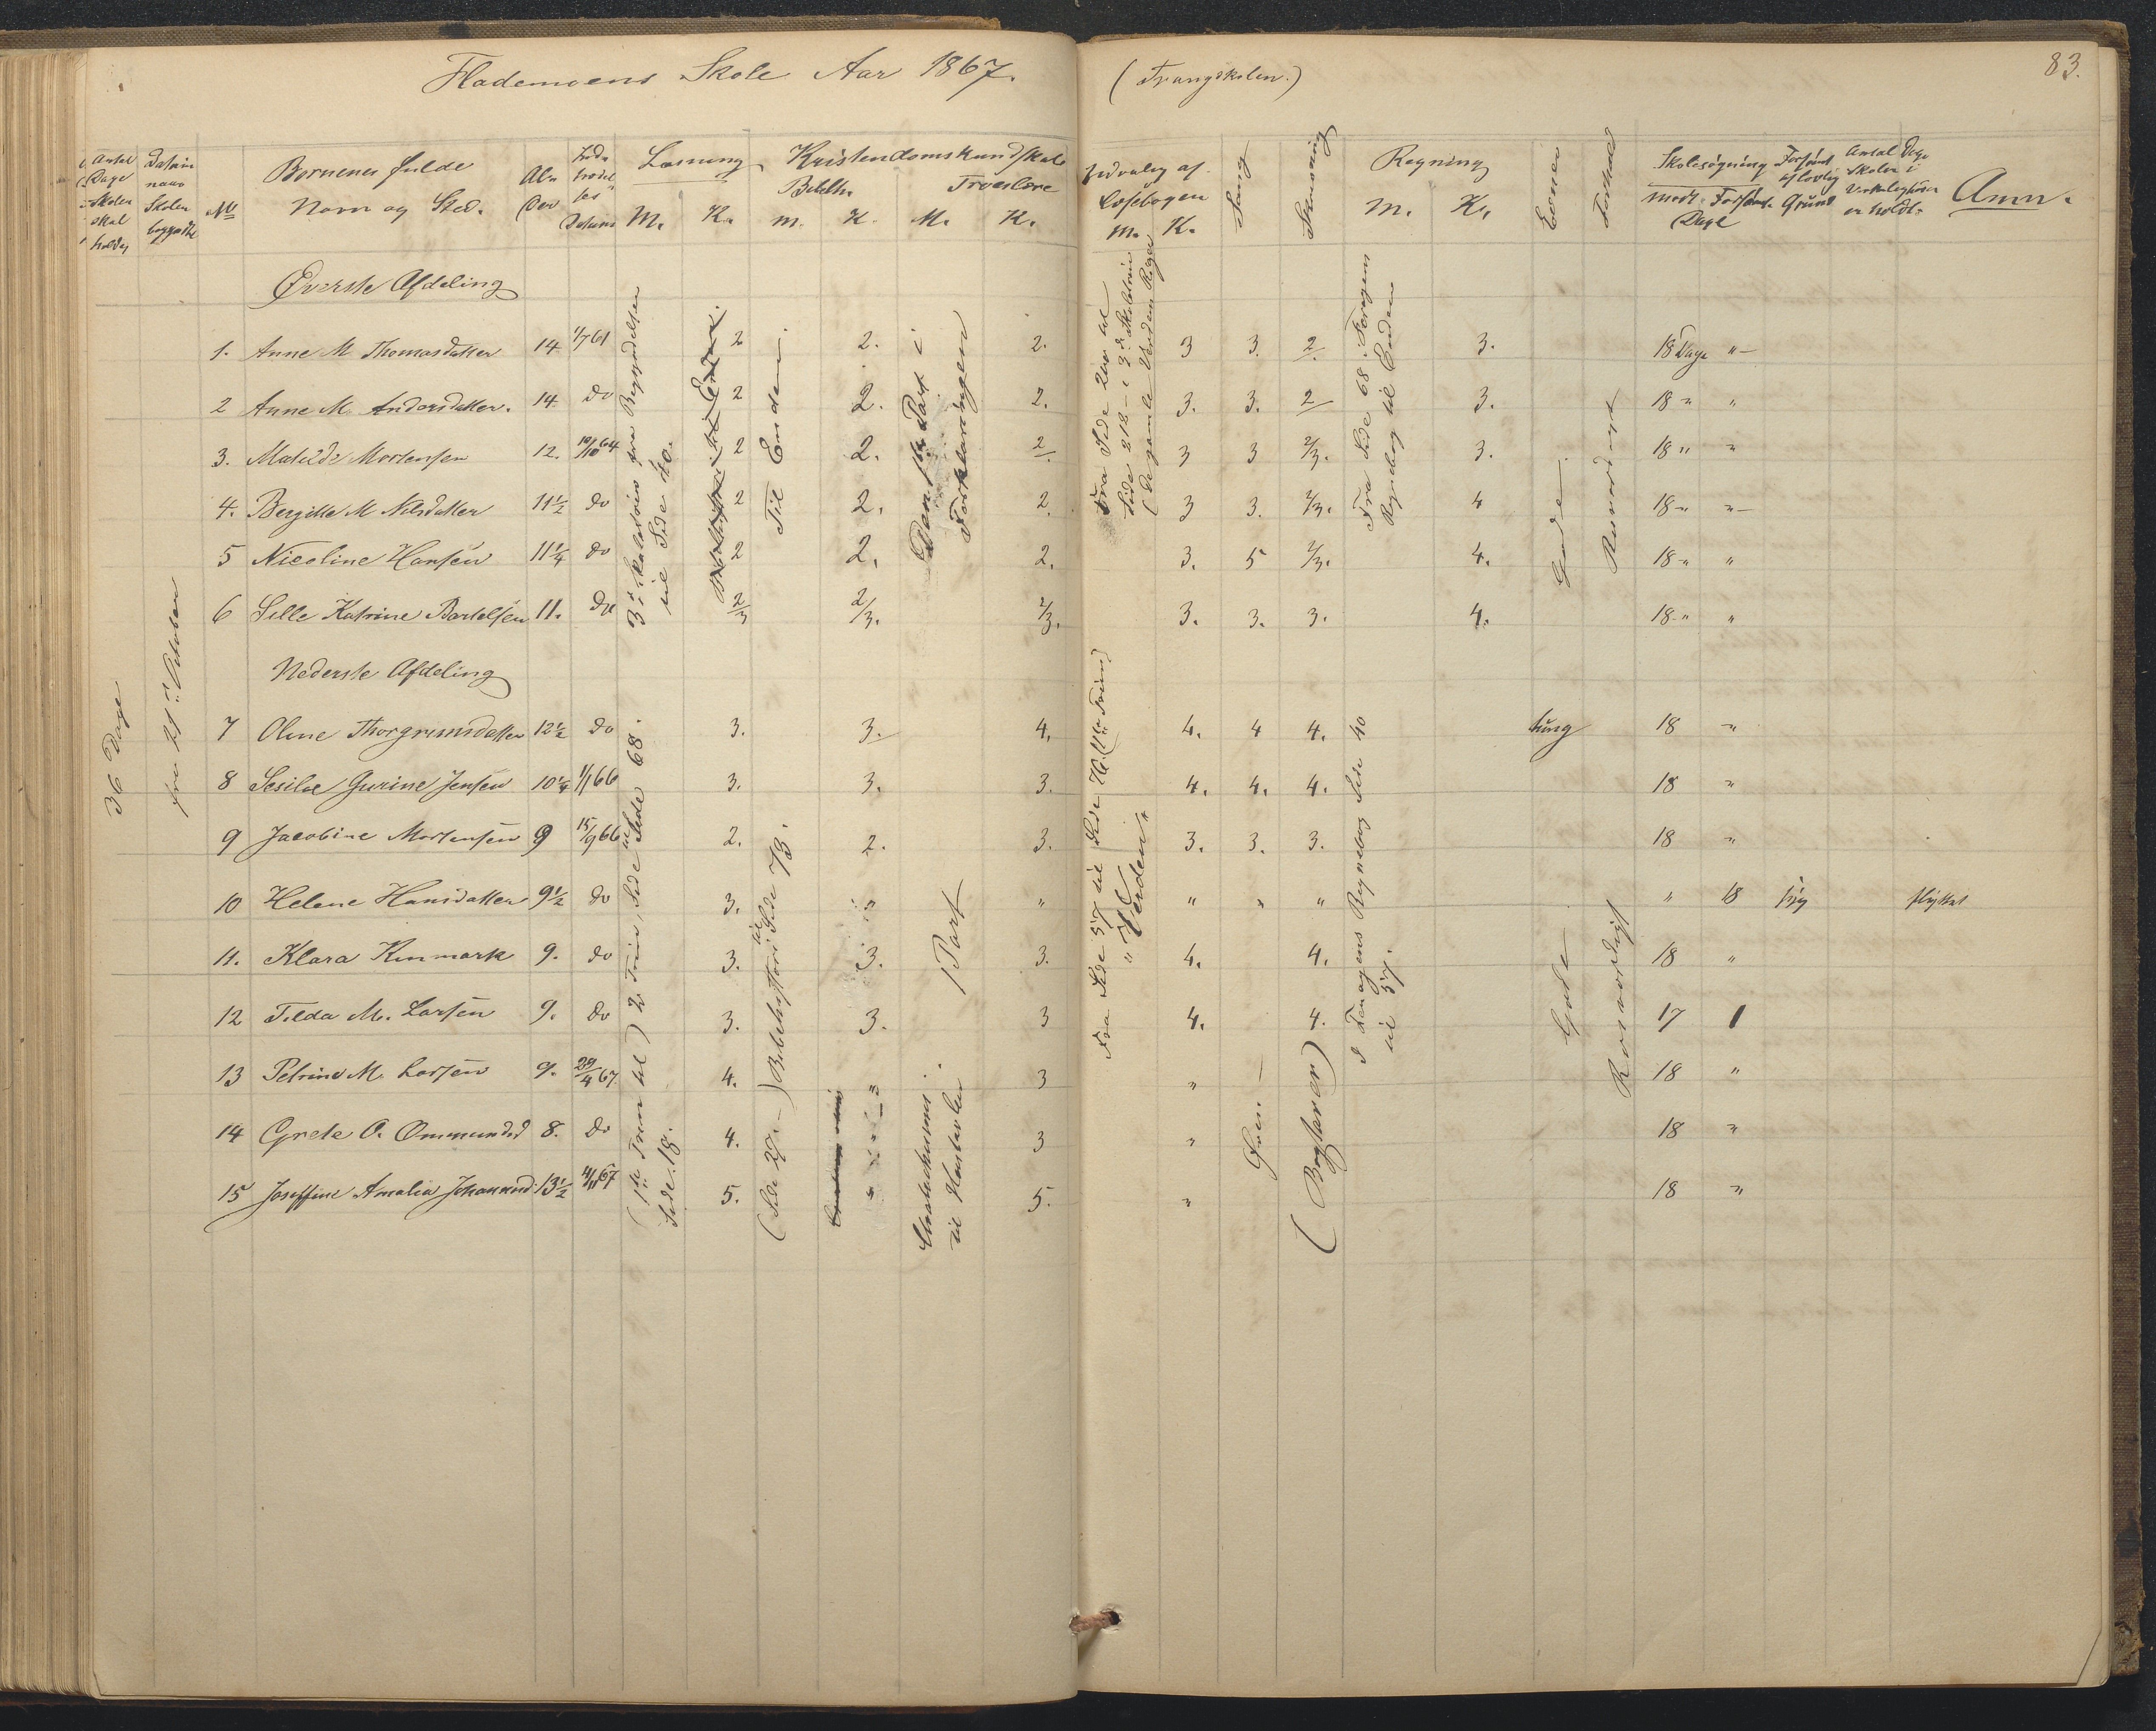 Flademoens Skole Aar 1867. (Trangskolen.) 83.
Antal Dage Skolen skal holdes
Datum naar Skolen begyndte
No
Børnenes fulde Navn og Sted.
Alder
Indtrædelses Datum
Læsning M. K.
Kristendomskundskab
Bibelh. M. K.
Troeslære M. K.
Udvalg af Læsebogen M. K.
Sang
Skrivning
Regning M. K.
Evner
Forhold
Skolesøgning
mødt Dage
Forsømt
Forsømt af lovlig Grund
Antal Dage Skolen i Virkeligheden er holdt
Anm.
36 Dage
fra 21de Oktober
Øverste Afdeling
1. Anne M Thomasdatter 14 1/7 61 2 2. 2. 3 3. 2. 3. 18 Dage "
2 Anne M. Andersdatter. 14 do 2 2. 2. 3. 3. 2 3. 18 " "
3. Matilde Mortensen 12. 10/10 64 2 2. 2. 3 3 2/3. 3. 18 " "
4. Bergitte M Nilsdatter 11 1/2 do 2 2. 2. 3 3. 2/3. 4 18 " "
5 Nicoline Hansen 11 1/4 do 2 2. 2. 3. 5 2/3. 4. 18 " "
6 Sille Katrine Bartelsen 11. do 2/3 2/3. 2/3. 3. 3. 3. 4. 18 " "
3die Skoletrin fra Begyndelsen til Side 40.
Til Enden.
Den 1ste Part i Forklaringen
Fra Side 200 til Side 212 i 3die Skoletrin (De gamle Verdens Riger
Fra Side 68 i Foregens Regnebog til Enden
Gode
Rosværdigt
Nederste Afdeling
7 Oline Thorgrimsdatter 12 1/2 do 3. 3. 4. 4. 4 4. tung 18 "
8 Sesilie Gurine Jensen 10 1/4 1/1 66 3. 3. 3. 4. 4. 4. 18 "
9 Jacobine Mortensen 9 15/9 66 2. 2. 3. 3. 3. 3. 18 "
10 Helene Hansdatter 9 1/2 do 3. " " " " " " 18 syg flyttet
11. Klara Kinmark 9. do 3. 3. 3. 4. 4. 18 "
12 Tilda M. Larsen 9. do 3. 3. 3 4. 4. 17 1
13 Petrine M. Larsen 9. 29/4 67. 4. " 3 " 18 "
14 Grete O. Ommundsd 8. do 4. " 3 " 18 "
15 Joseffine Amalia Johannesd. 13 1/2 4/11 67 5. " 5. " 18 "
(1ste Trin til Side 18.) 2 Trin, Side til Side 68.
(Side 29 ) Bibelhistori til Side 73.
1 Part
Fra Side 57 til Side 76 (1ste Trin)
" Verden "
I Foregens Regnebog Side 40 til 57.
(Bogstaver)
Gode
Rosværdigt